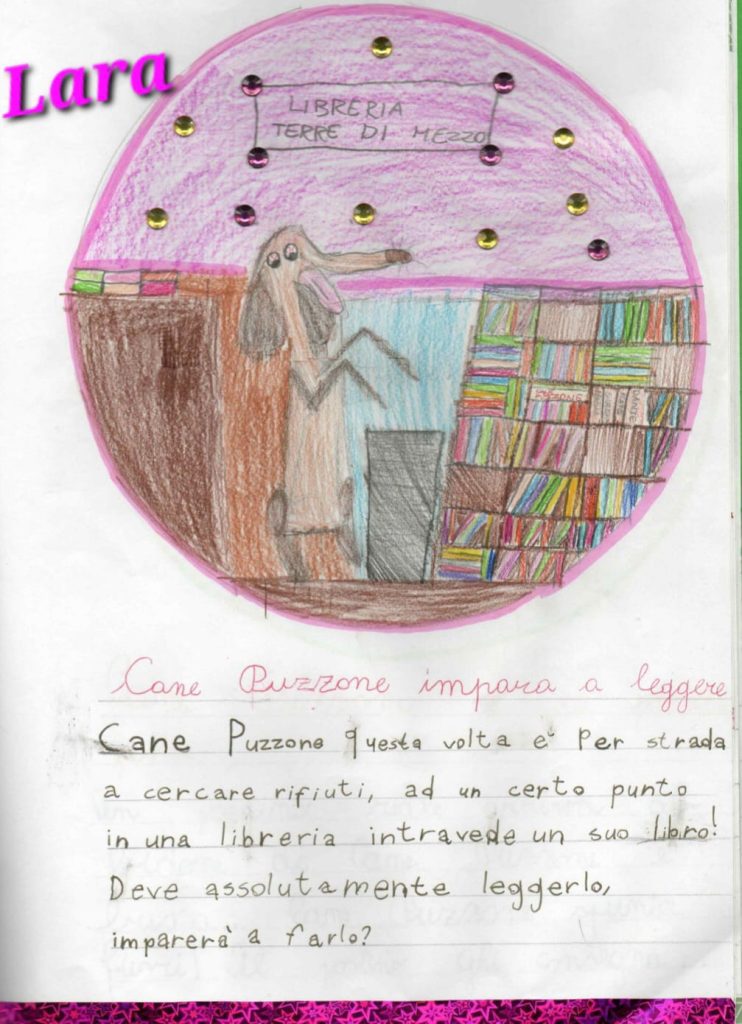 Lara
LIBRERIA
TERRE DI MEZZO
PUZZONE
Cane Puzzone impara a leggere
Cane Puzzone questa volta e' Per strada
a cercare rifiuti, ad un certo punto
in una libreria intravede un suo libro!
Deve assolutamente leggerlo,
imparerà a farlo?